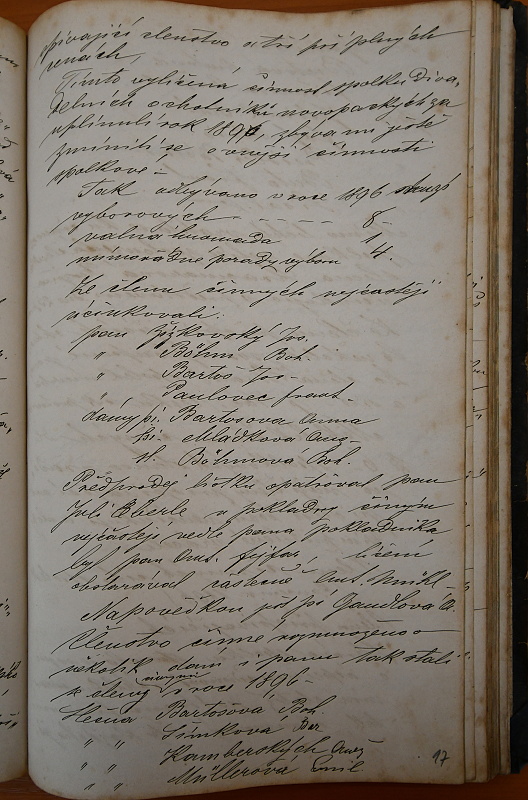 pívající členstvo a tří při plných
renách,
Tímto vylíčena činnost spolku diva-
delních ochotníků novopackých za
uplinulí rok 1896, zbývá mi ještě
zmíniti se o vnější činnosti
spolkové:
Tak odbýváno v roce 1896 schůzí
výborových - - - - - 8
valná hromada 1
mimořádné porady výboru 4.
Ze členů činných nejčastěji
účinkovali:
pan Žižkovský Jos.
" Böhm Boh.
" Bartoš Jos.
" Paulovec Frant.
dámy pí. Bartošova Anna
pí. Mládková Aug.
sl. Böhmová Boh.
Předprodej lístků opatřoval pan
Jul. Eberle u pokladny činným
nejčastěji vedle pana pokladníka
byl pan Ant. Fejfar,
obstarával částečně Ant.
Nápovědkou pí Gandlová A.
Členstvo činné rozmnoženo o
několik dam i pánů tak stali
se členy činnými v roce 1896
Slečna Bartošova Boh.
" " Šimková Bar
" " Kamberských
" " Müllerova Emil
97